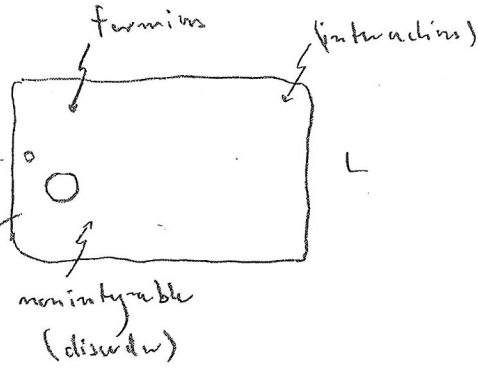 fermions
(interactions)
L
nonintegrable
(disorder)